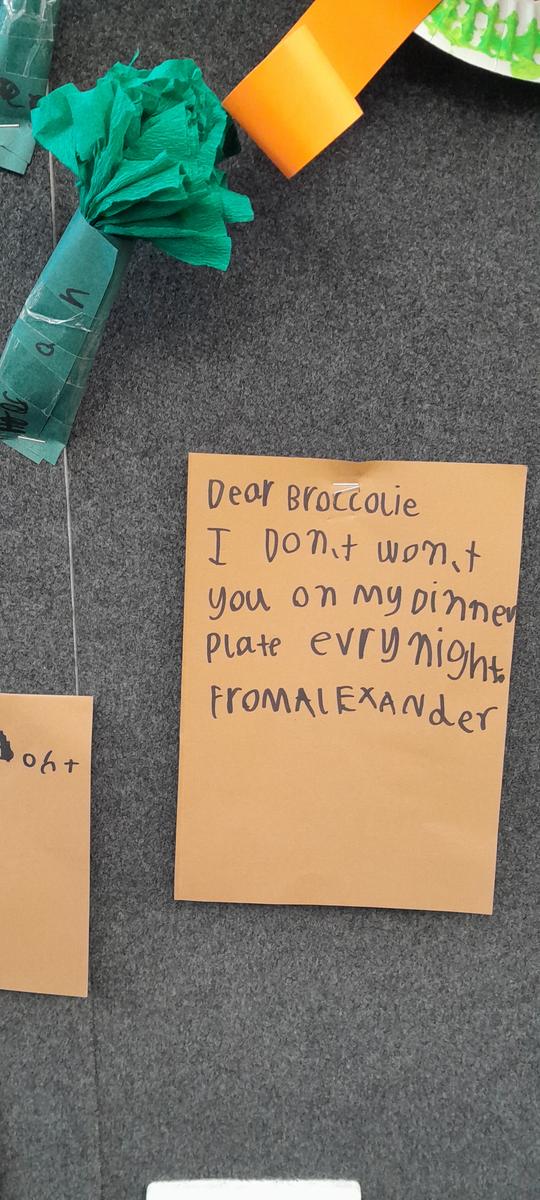 Dear Broccolie
I Don,t won,t
you on my Dinner
Plate evry night.
FROM ALEXANder